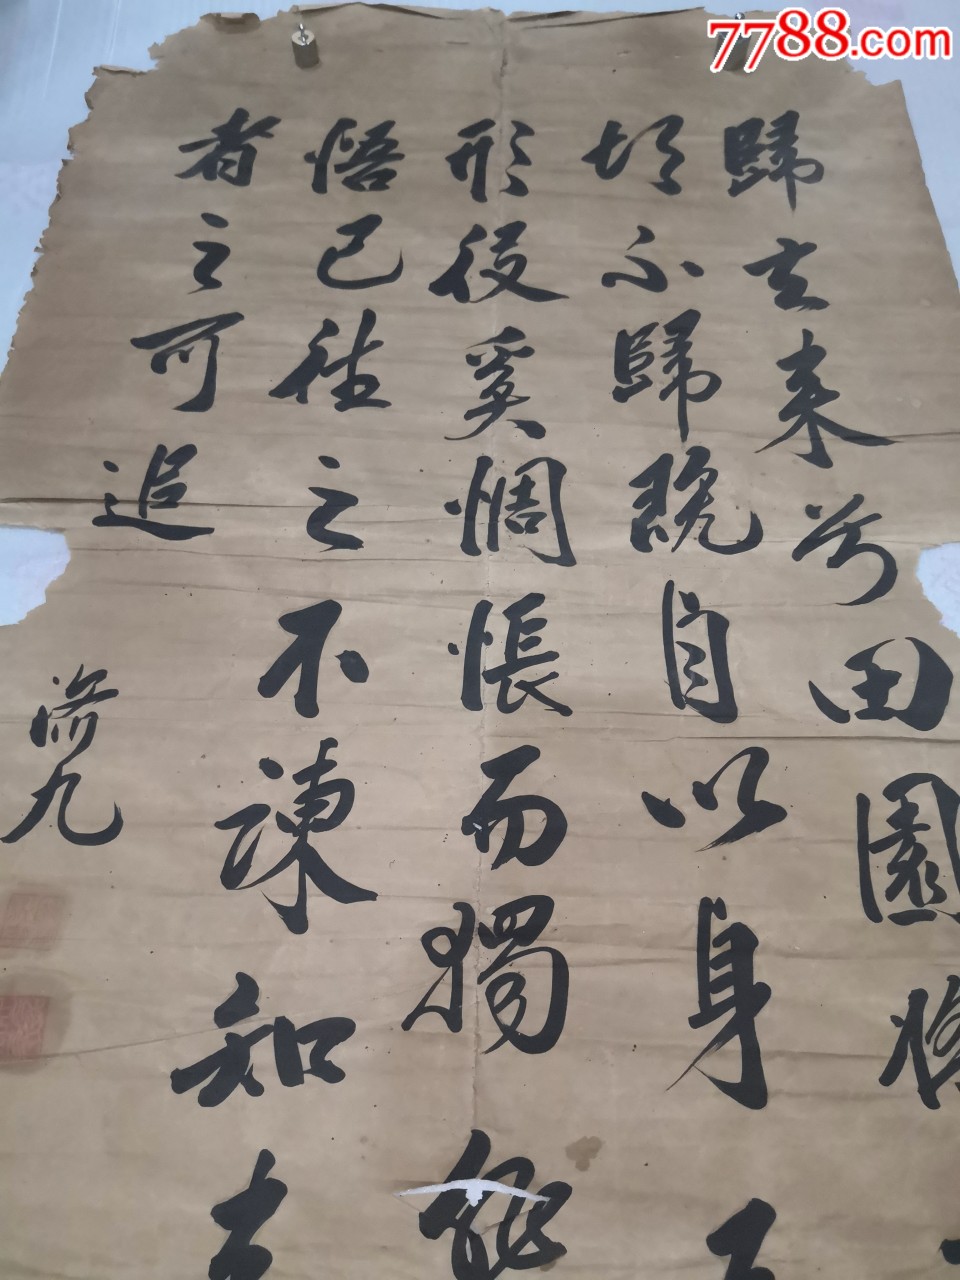 7788.com
歸去来兮田園將
胡不歸既自以身
形役奚惆悵而獨
悟已往之不諫知
者之可追
九